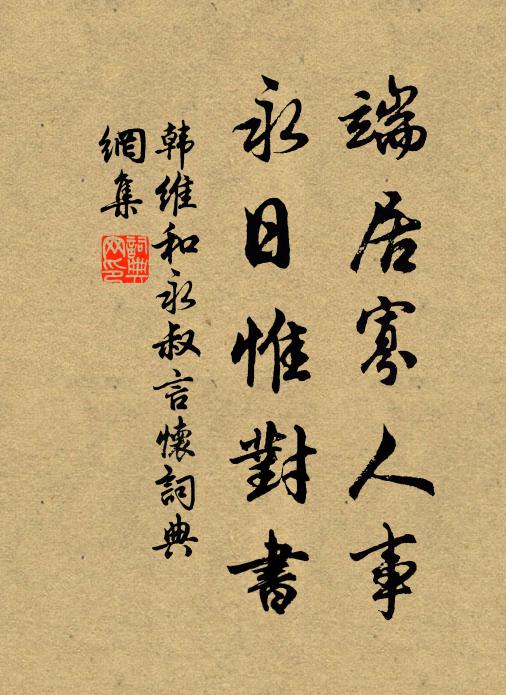 端居寡人事
永日惟對書
韩維和永叔言懷詞典
網集
詞典
网印